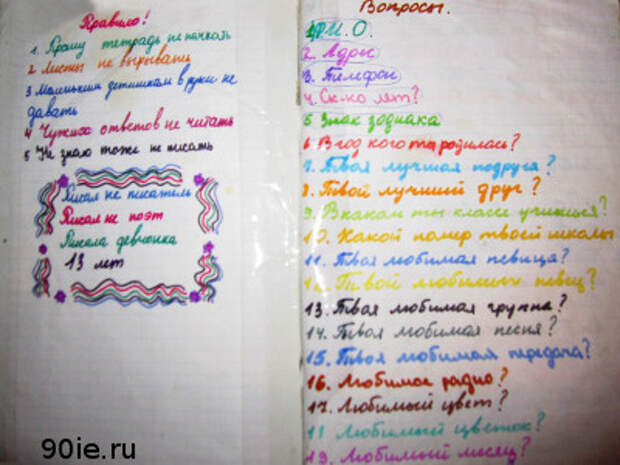 Правило!
1. Прошу тетрадь не пачкать
2 Листы не вырывать
3 Маленьким детишкам в руки не
давать
4 Чужих ответов не читать
5 Не знаю тоже не писать
Писал не писатель
Писал не поэт
Писала девчонка
13 лет
Вопросы.
1. Ф.И.О.
2. Адрес
3. Телефон
4. Ск-ко лет?
5 Знак зодиака
6 В год кого ты родилась?
7. Твоя лучшая подруга?
8. Твой лучший друг?
9. В каком ты классе учишься?
10. Какой номер твоей школы
11. Твоя любимая певица?
12. Твой любимый певец?
13. Твоя любимая группа?
14. Твоя любимая песня?
15. Твоя любимая передача?
16. Любимое радио?
17. Любимый цвет?
11 Любимый цветок?
19. Любимый месяц?
90ie.ru